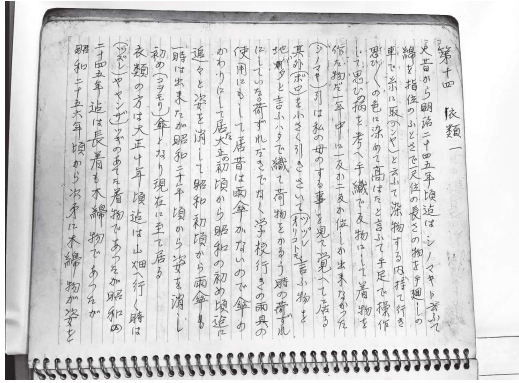 第十四　衣類一
大昔から明治二十四五年頃迄はシノマキト云ふて
綿を指位のふとさで尺位の長さの物を手廻しの
車で糸に取(カンヤ)と云ふて染物する内持て行き
思ひ〱の色に染めて高はたと言ふて手足で操作
して思ひ〱の縞を考へ手織で反物にして着物を
作た物だ一年中に一反か二反か位しか出来なかった
(シノマキ)引は私の母のする事を見て覚へて居る
其外ボロを小さく引きさいて(ツヾレ)と言ふ物を
地バタと言ふハタで織て荷物をかるう時の荷ずれ
にしていた荷ずれだきでなく学校行きの雨具の
使用にもして居た昔は雨傘がないので傘の
かわりにして居大正初頃から昭和の初め頃迄に
追々と姿を消して昭和初頃から雨傘も
一時は出来たが昭和二十年頃から姿を消し
初め(コーモリ)傘となり現在に至て居る
衣類の方は大正十年頃迄は山畑行く時は
(ツヾレ)やヤンザツギのあてた着物であったが昭和の
二十四五年迄は長着も木綿物であったが
昭和二十五六年頃から次第に木綿物が姿を